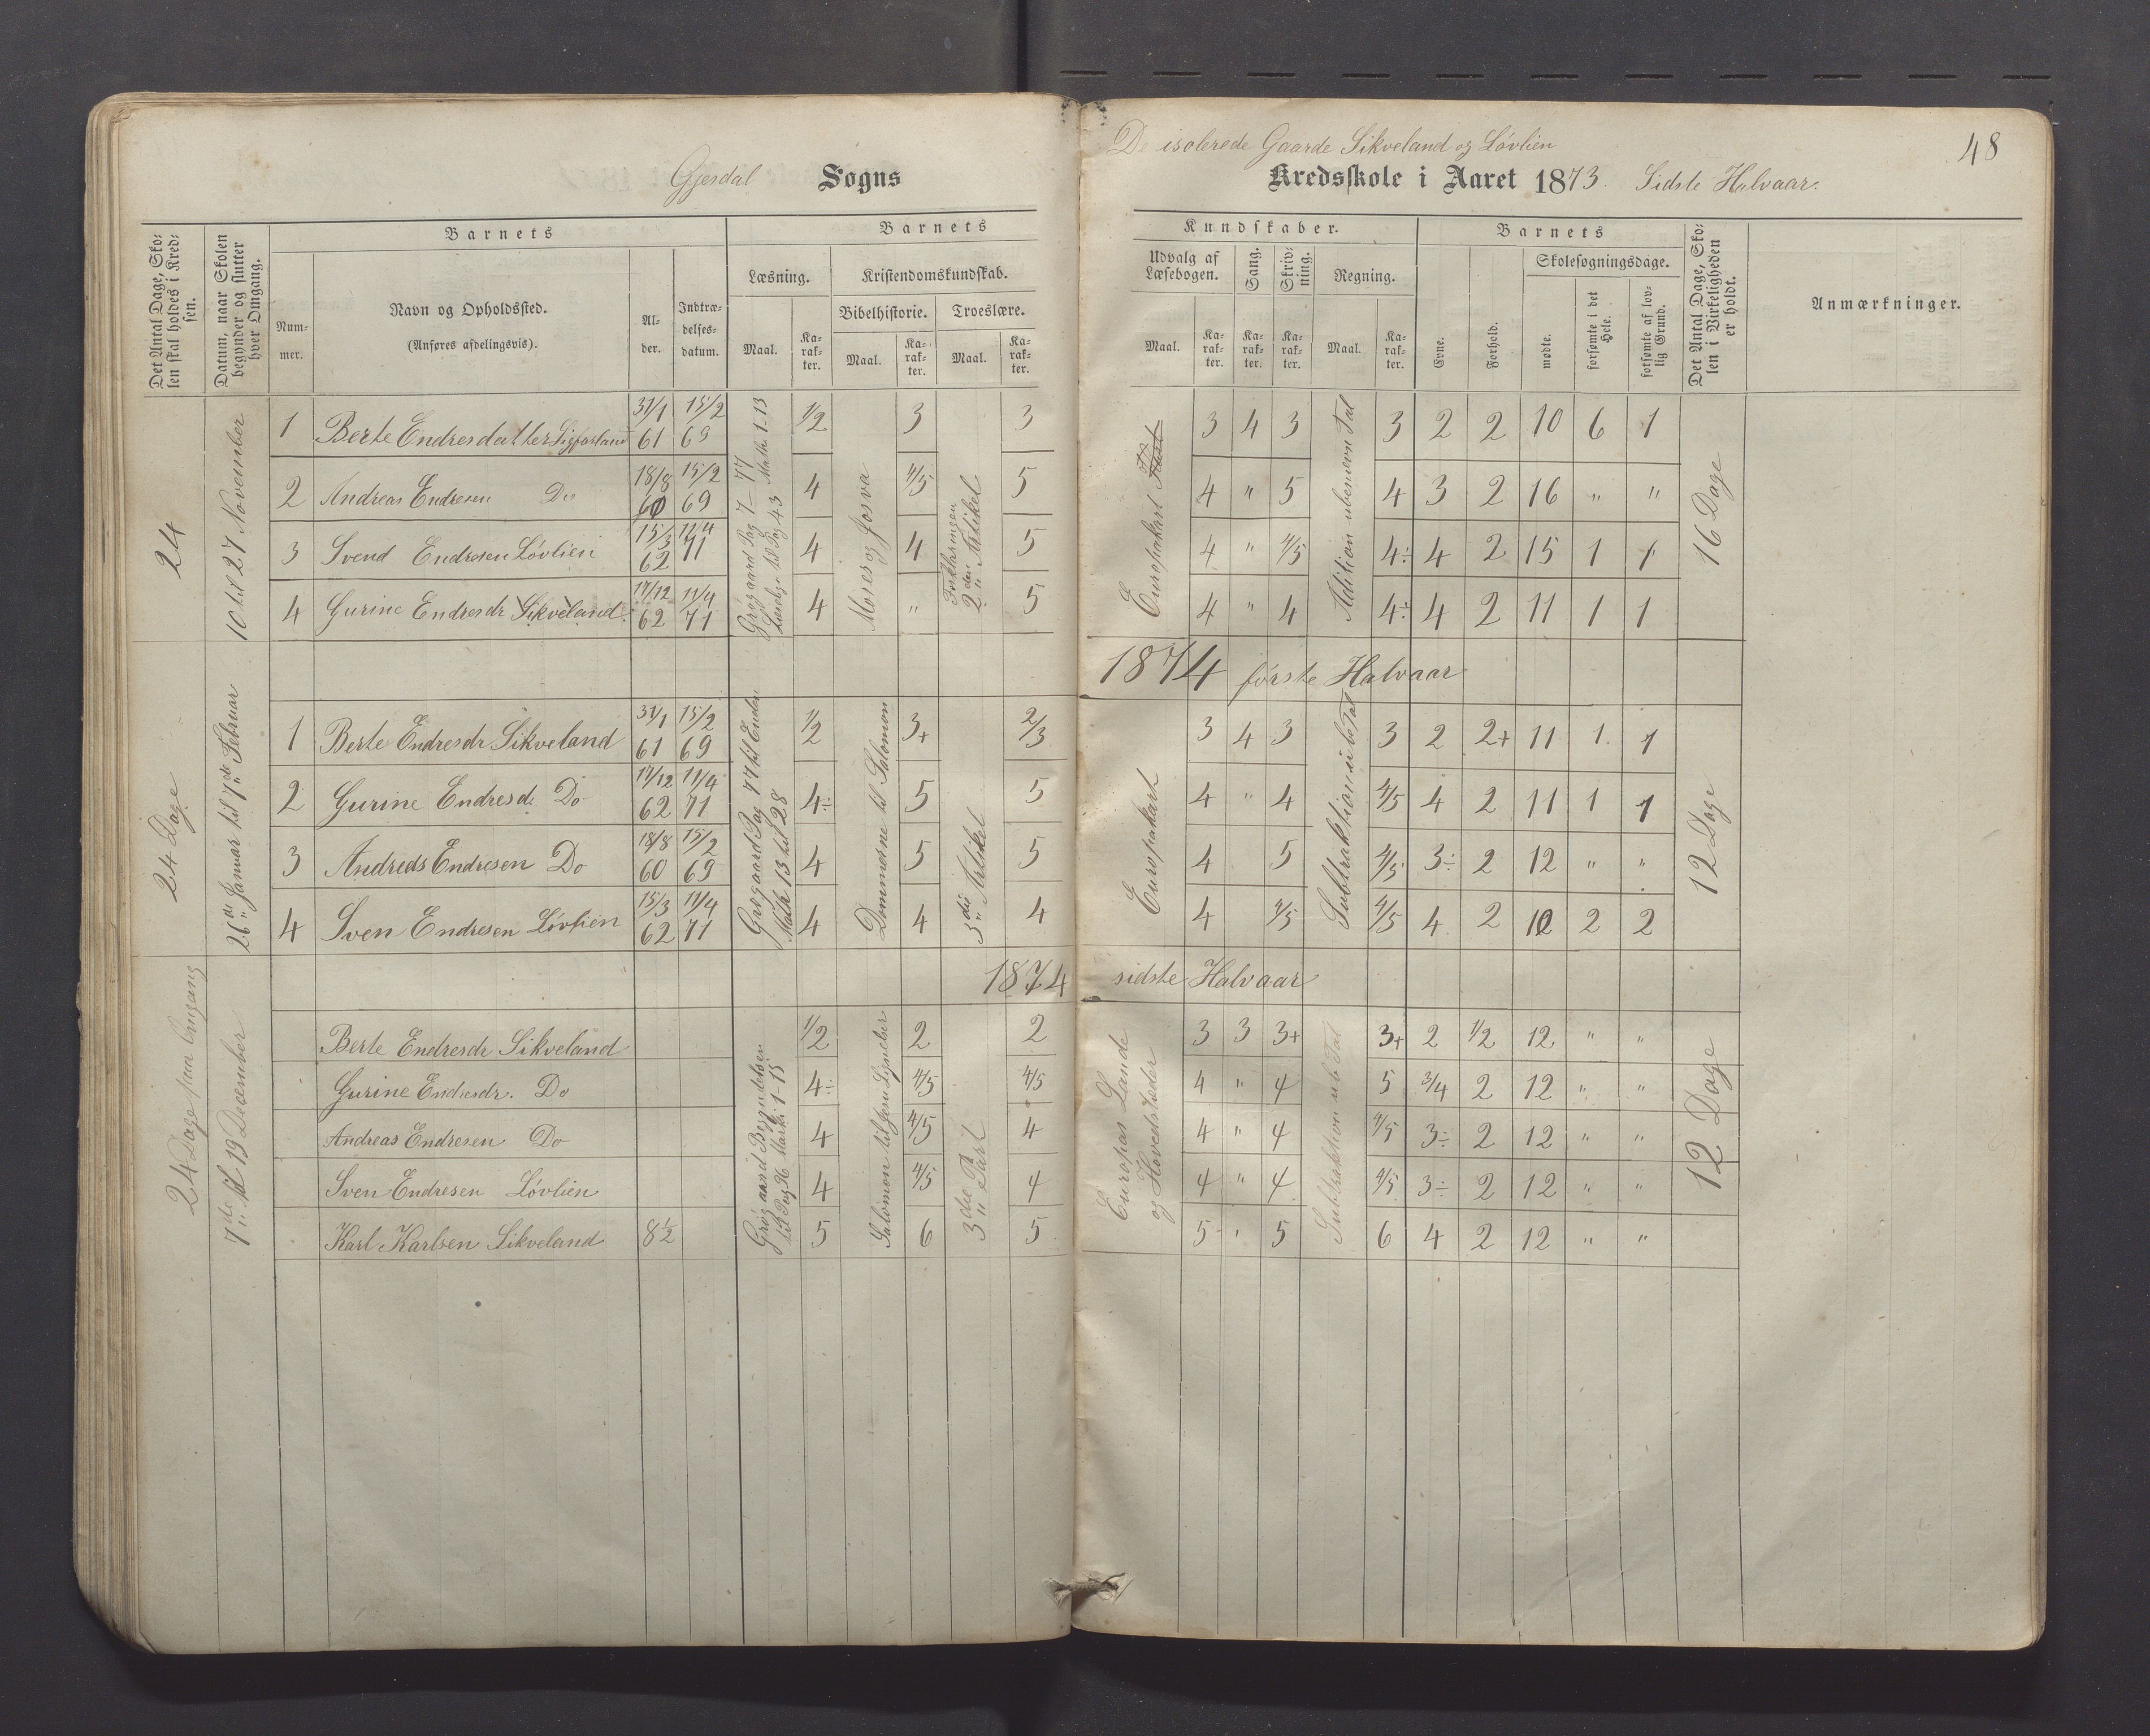 Gjesdal Sogns
De isolerede Gaarde Sikveland og Lovlien
48
Kredsskole i Aaret 1873. Sidste Halvaar.
Det Antal Dage, Skolen skal holdes i Kredsen.
Datum, naar Skolen begynder og slutter hver Omgang.
Barnets
Nummer.
Navn og Opholdssted.
(Anføres afdelingsvis).
Alder.
Indtrædelsesdatum.
Barnets
Læsning.
Maal.
Karakter.
Kristendomskundskab.
Bibelhistorie.
Maal.
Karakter.
Troeslære.
Maal.
Karakter.
Kundskaber.
Udvalg af Læsebogen.
Maal.
Karakter.
Sang.
Karakter.
Skrivning.
Karakter.
Regning.
Maal.
Karakter.
Barnets
Evne.
Forhold.
Skolesøgningsdage.
mødte.
forsømte i det Hele.
forsømte af lovlig Grund.
Det Antal Dage, Skolen i Virkeligheden er holdt.
Anmærkninger.
24
10 til 27 November
Math. 1-13
Moses og Josva
Forklaringen 2den Artikel
Europakart
Adition ubenevn Tal
16 Dage
1 Berte Endresdatter 31/1 61 15/2 69 1/2 3 3 3 4 3 3 2 2 10 6 1
2 Andreas Endresen Do 18/8 60 15/2 69 4 4/5 5 4 " 5 4 3 2 16 " "
3 Svend Endresen Lovlien 15/3 62 11/4 71 4 4 5 4 " 4/5 4÷ 4 2 15 1 1
4 Gurine Endresdr Sikveland 17/12 62 11/4 71 4 " 5 4 " 4 4÷ 4 2 11 1 1
1874 første Halvaar
24 Dage
26de Januar til 7de Februar
Grøgaard Pag 77 til Enden
Math 13 til 28
Dommerne til Salomon
3die Artikel
Europakart
Subtraktion ube Tal
12 Dage
1 Berte Endresdr Sikveland 31/1 61 15/2 69 1/2 3+ 2/3 3 4 3 3 2 2+ 11 1 1
2 Gurine Endresd: Do 17/12 62 11/4 71 4÷ 5 5 4 " 4 4/5 4 2 11 1 1
3 Andreas Endresen Do 18/8 60 15/2 69 4 5 5 4 5 4/5 3÷ 2 12 " "
4 Sven Endresen Lovlien 15/3 62 11/4 71 4 4 4 4 4/5 4/5 4 2 10 2 2
1874 sidste Halvaar
24 Dage paa Omgang
7de til 19 December
Grøgaard Begyndelsen til Pag 36 Mark. 1-15
3die Part
Europas Lande og Hovedstæder
Subtraktion ub Tal
12 Dage
Berte Endresdr Sikveland 1/2 2 2 3 3 3+ 3+ 2 1/2 12 " "
Gurine Endresdr. Do 4÷ 4/5 4/5 4 " 4 5 3/4 2 12 " "
Andreas Endresen Do 4 4/5 4 4 " 4 4/5 3÷ 2 12 " "
Sven Endresen Lovlien 4 4/5 4 4 " 4 4/5 3÷ 2 12 " "
Karl Karlsen Sikveland 8½ 5 6 5 5 " 5 6 4 2 12 " "